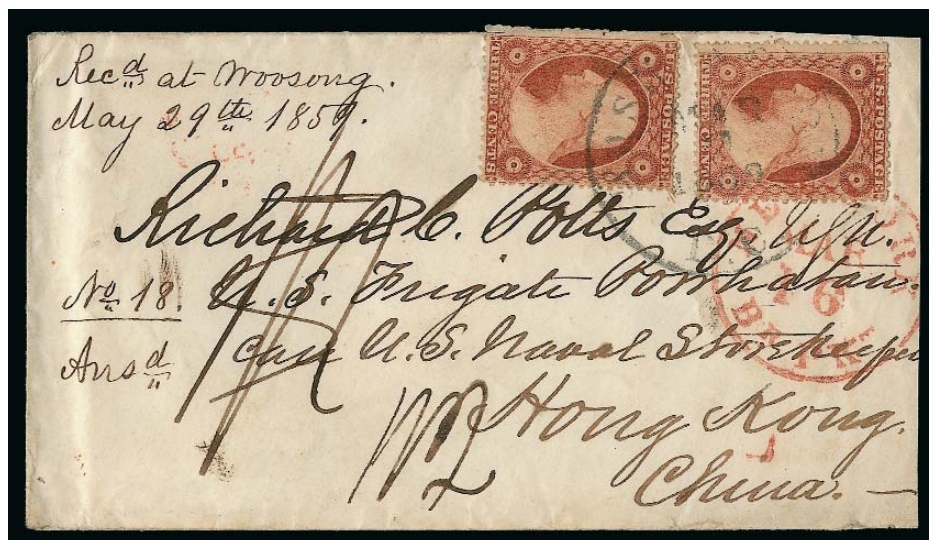 Rec'd at Woosong.
May 29th. 1859.
THREE CENTS
U.S. POSTAGE
THREE CENTS
U.S. POSTAGE
Richard C. Potts Esq. USN.
No 18. U. S. Frigate Powhatan.
Ansd care U.S. Naval Storekeeper
Hong Kong.
China.
BR. PKT.
6